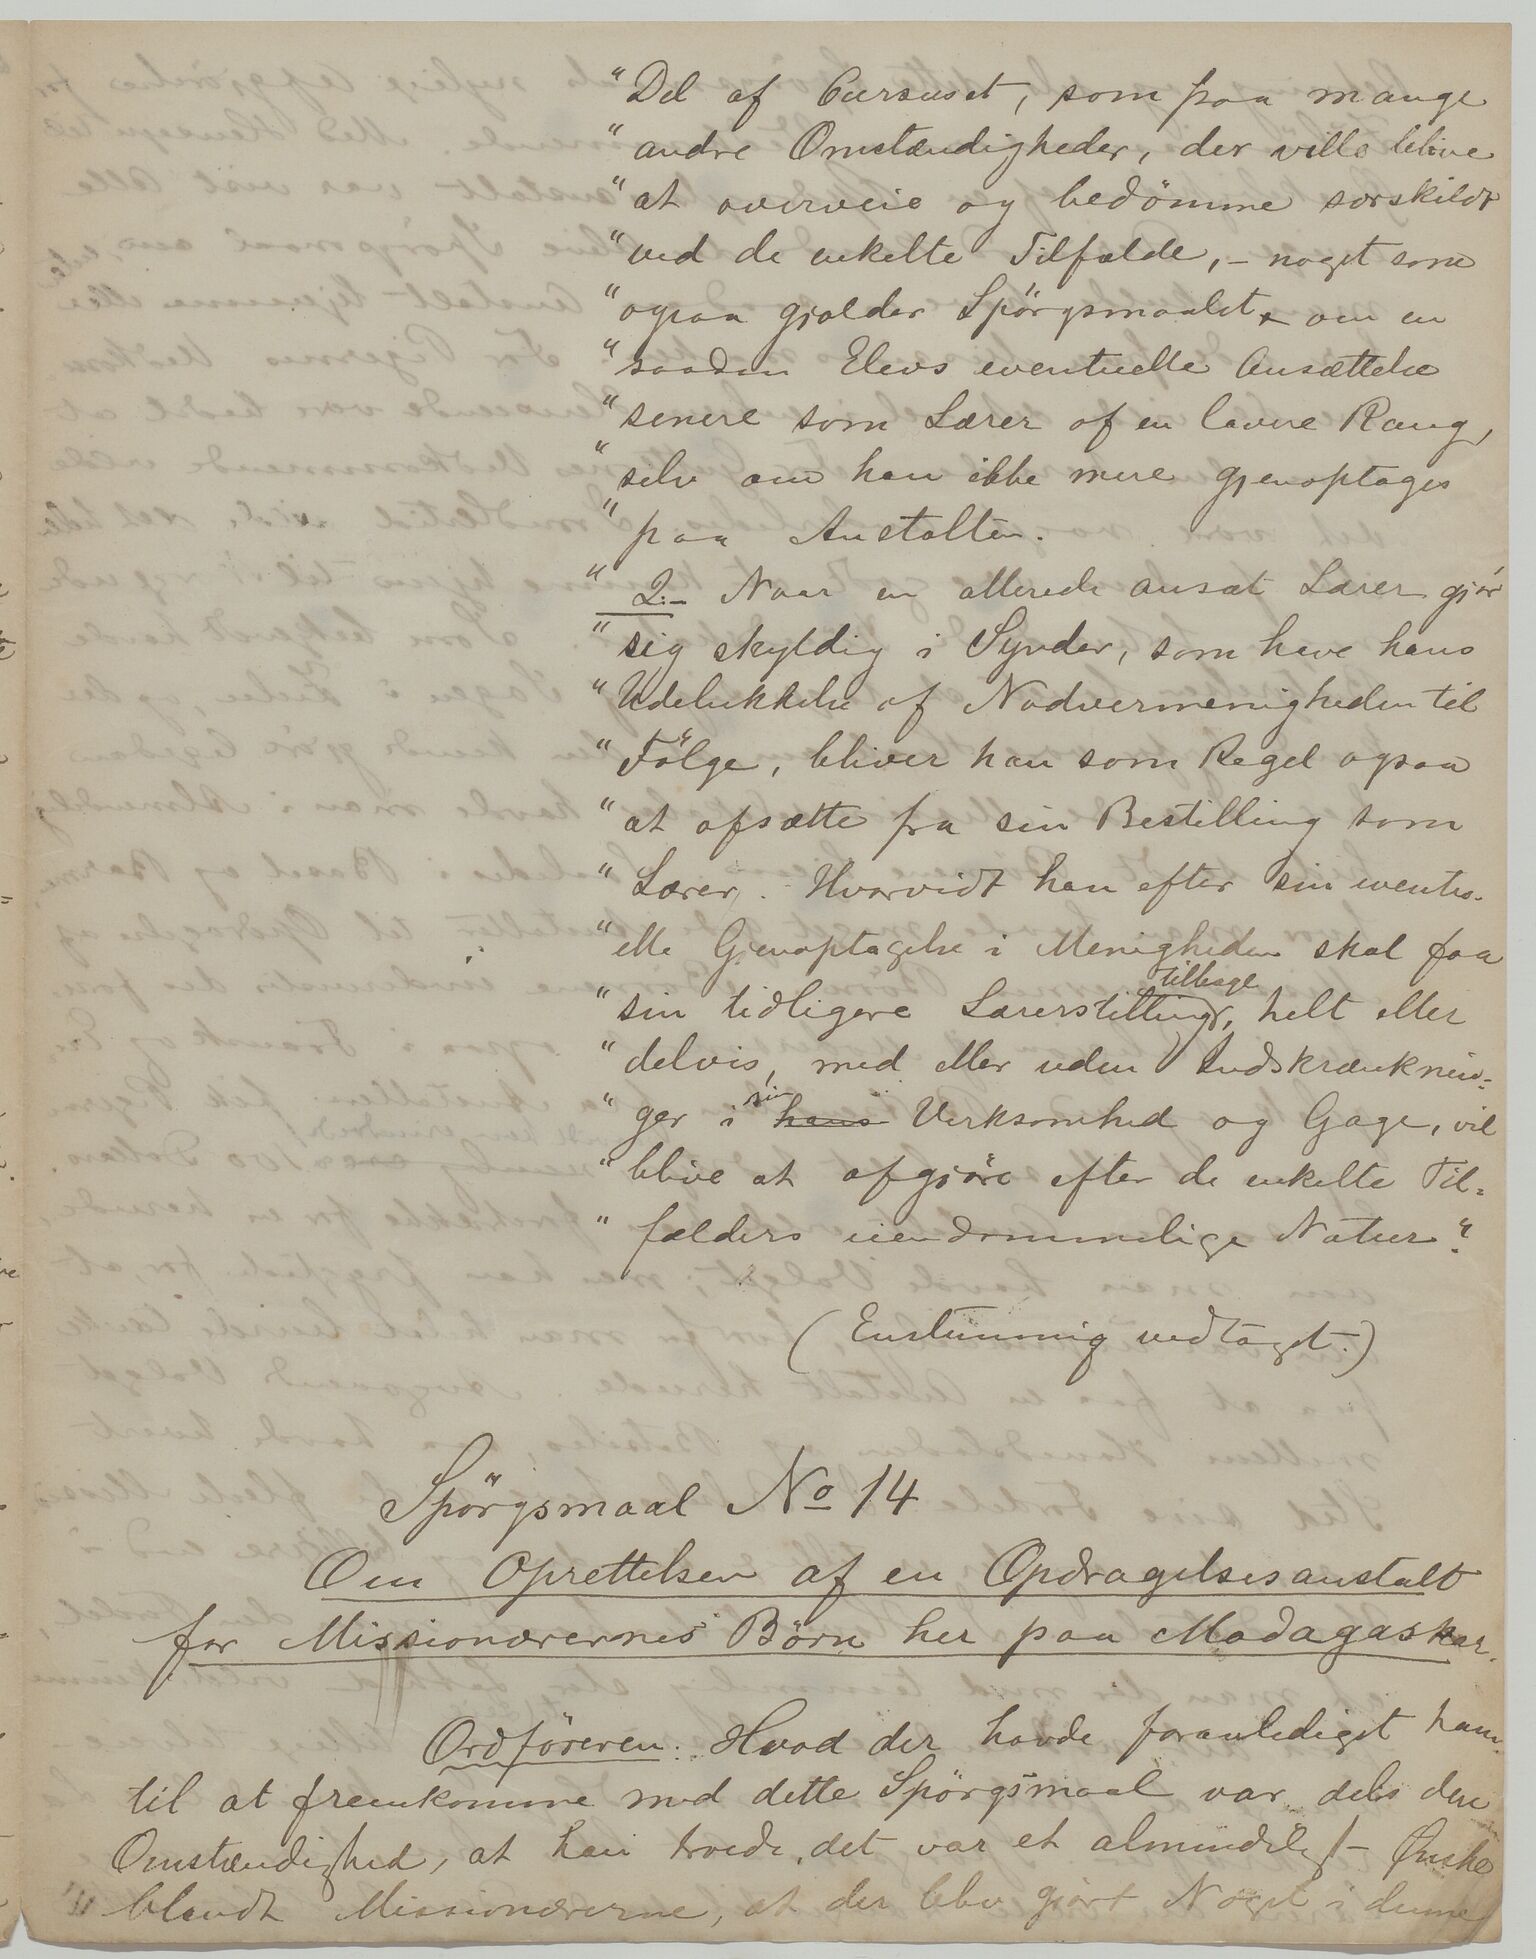 "Del af Cursuset, som paa mange
"andre Omstændigheder, der ville blive
"at overveie og bedömme særskildt
"ved de enkelte Tilfælde, – noget som
"ogsaa gjælder Spörgsmaalet om en
"saadan Elevs eventuelle Ansættelse
"senere som Lærer af en lavere Rang,
"selv om han ikke mere gjenoptages
"paa Anstalten.
"2.– Naar en allerede ansat Lærer gjör
"sig skyldig i Synder, som have hans
"Udelukkelse af Nadvermenigheden til
"Fölge, bliver han som Regel ogsaa
"at afsætte fra sin Bestilling som
"Lærer. Hvorvidt han efter sin eventu-
"elle Gjenoptagelse i Menigheden skal faa
"sin tidligere Lærerstilling tilbage, helt eller
"delvis, med eller uden Indskrænknin-
"ger i sin hans Virksomhed og Gage, vil
"blive at afgjöre efter de enkelte Til-
"fælders eiendommelige Natur".
(Enstemmig vedtaget.)
Spörgsmaal No 14
Om Oprettelsen af en Opdragelsesanstalt
for Missionærernes Börn her paa Madagaskar.
Ordföreren: Hvad der havde foranlediget ham
til at fremkomme med dette Spörgsmaal var dels den
Omstændighed, at han troede, det var et almindeligt Ønske
blandt Missionærerne, at der blev gjort Noget i denne